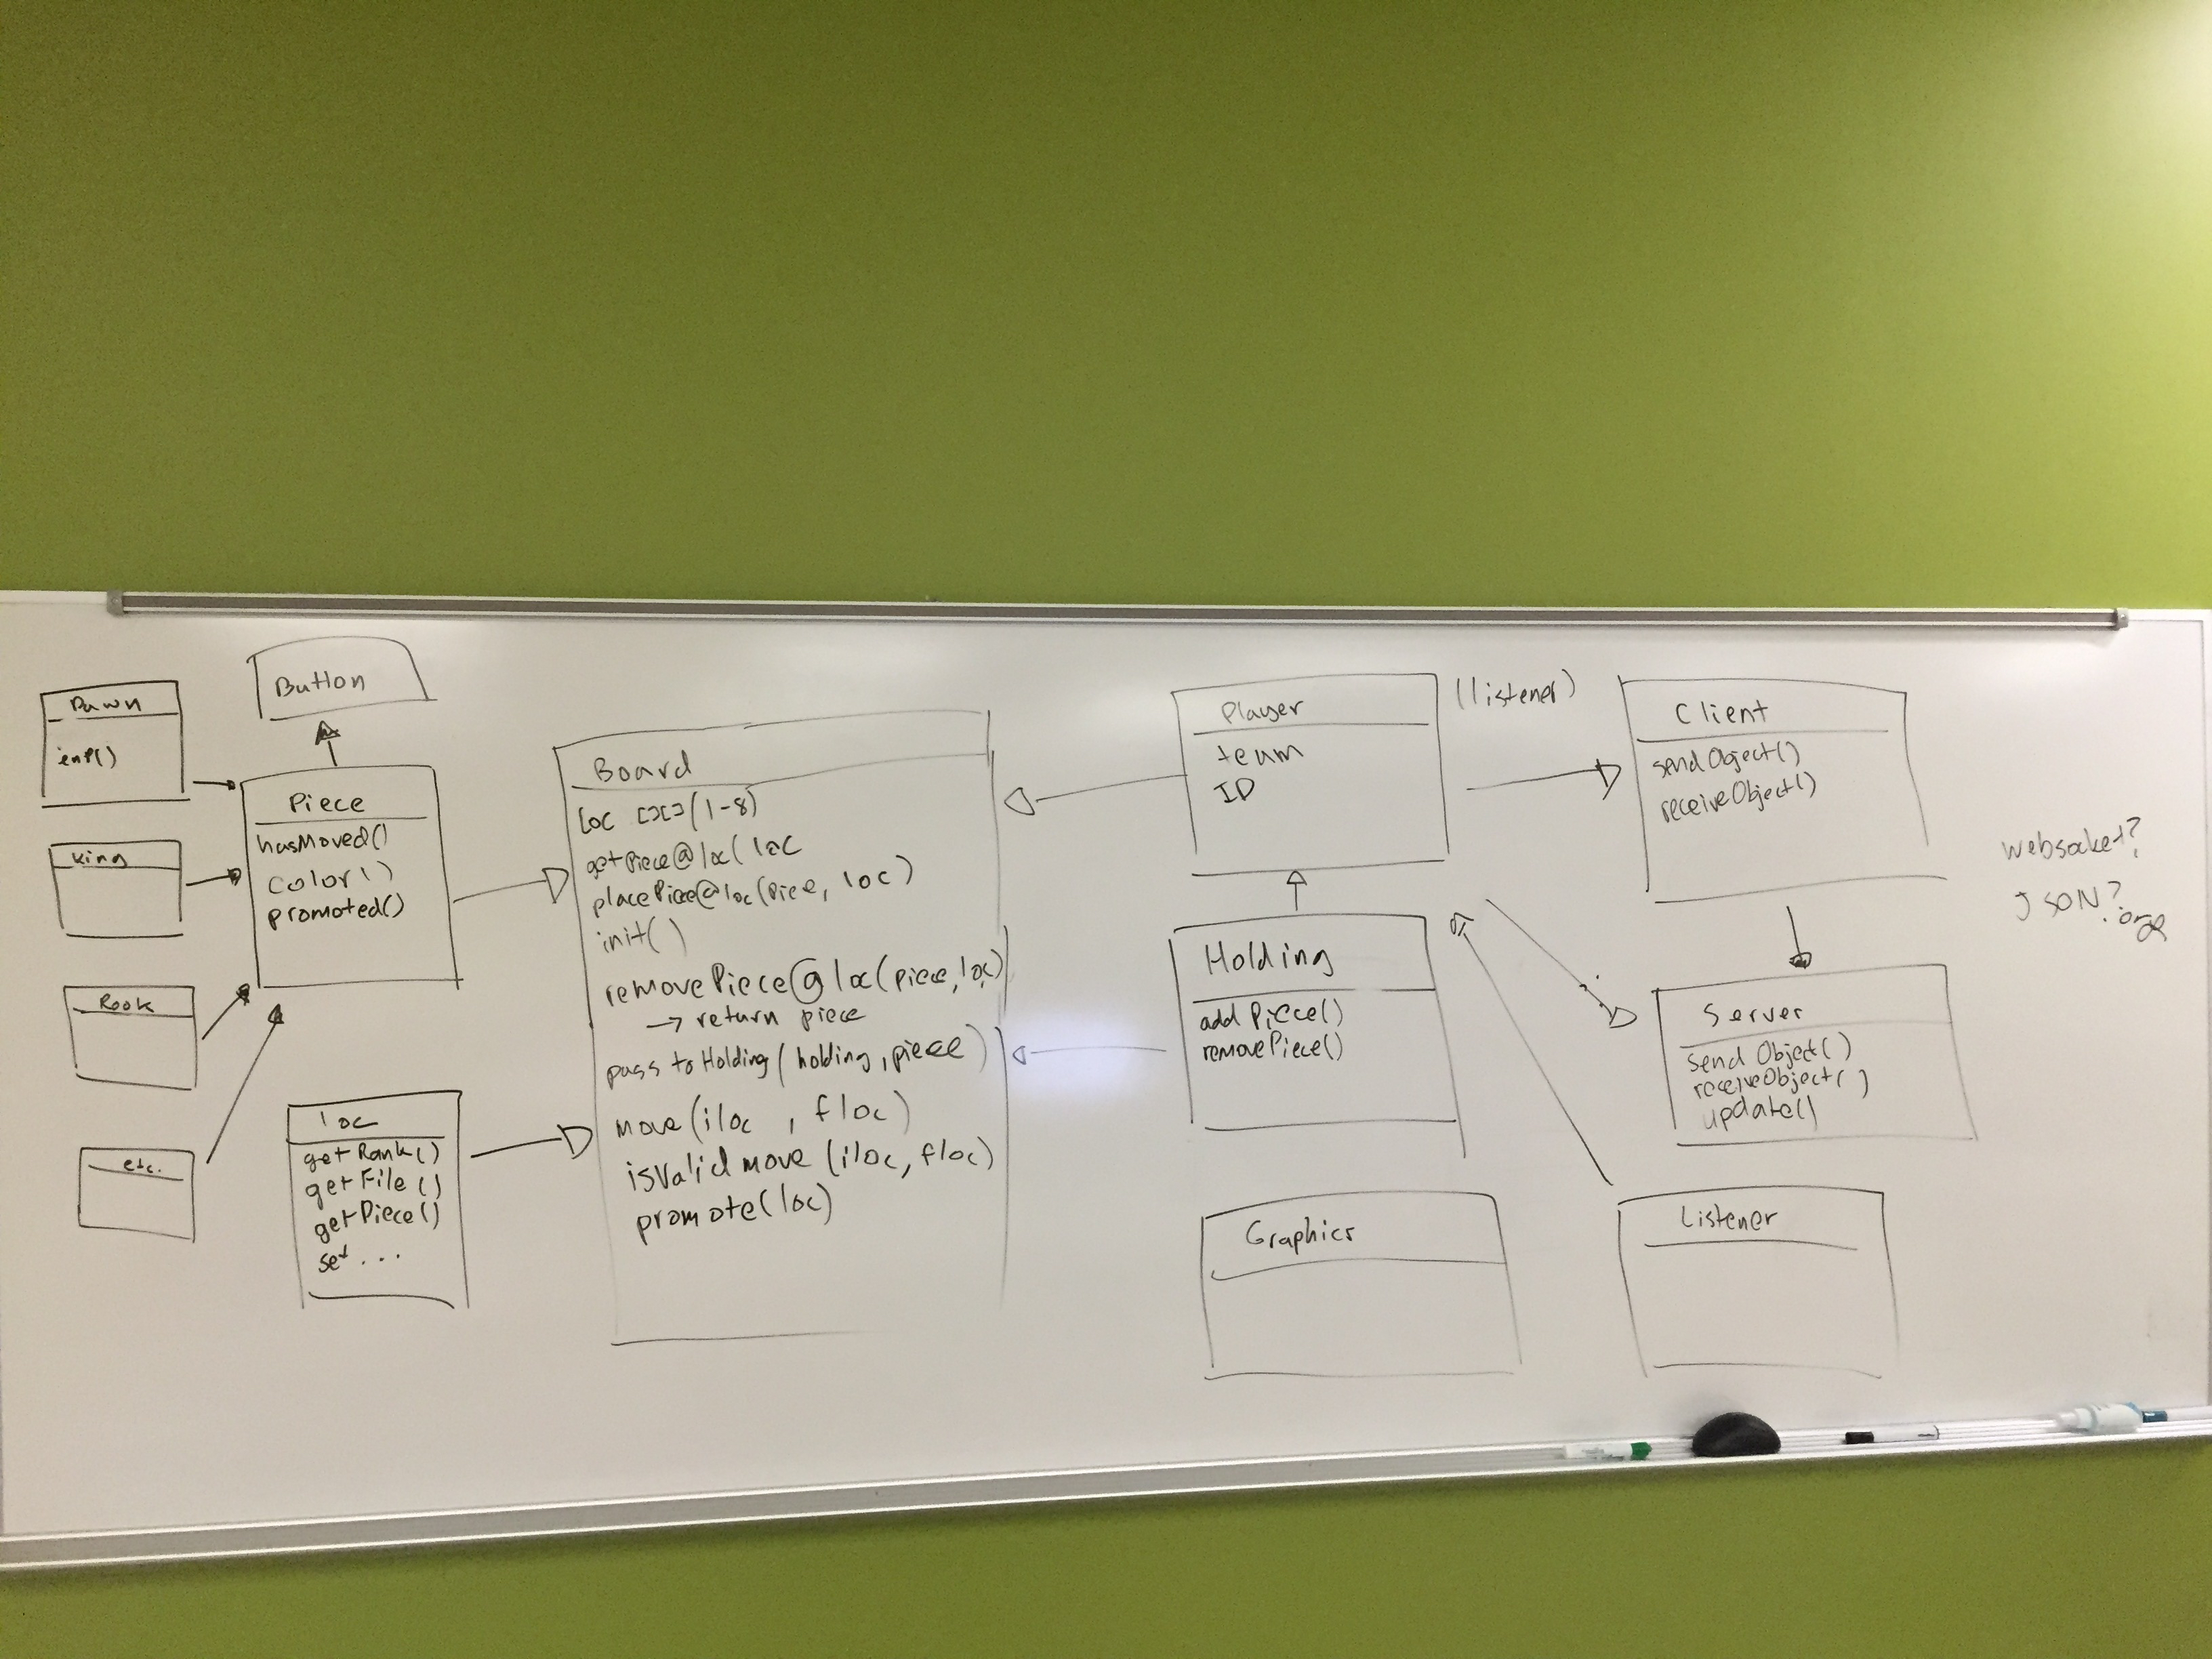 Pawn
enP()
King
Rook
etc.
Button
Piece
hasMoved()
color()
promoted()
loc
getRank()
getFile()
getPiece()
set...
Board
loc [][](1-8)
getPiece@loc(loc
placePiece@loc(piece, loc)
init()
removePiece@loc(piece, loc)
→ return piece
pass to Holding(holding, piece)
move(iloc, floc)
isValid move (iloc, floc)
promote(loc)
Player
team
ID
(listener)
Holding
addPiece()
removePiece()
Graphics
Client
sendObject()
receiveObject()
Server
sendObject()
receiveObject()
update()
Listener
websocket?
JSON?
.org